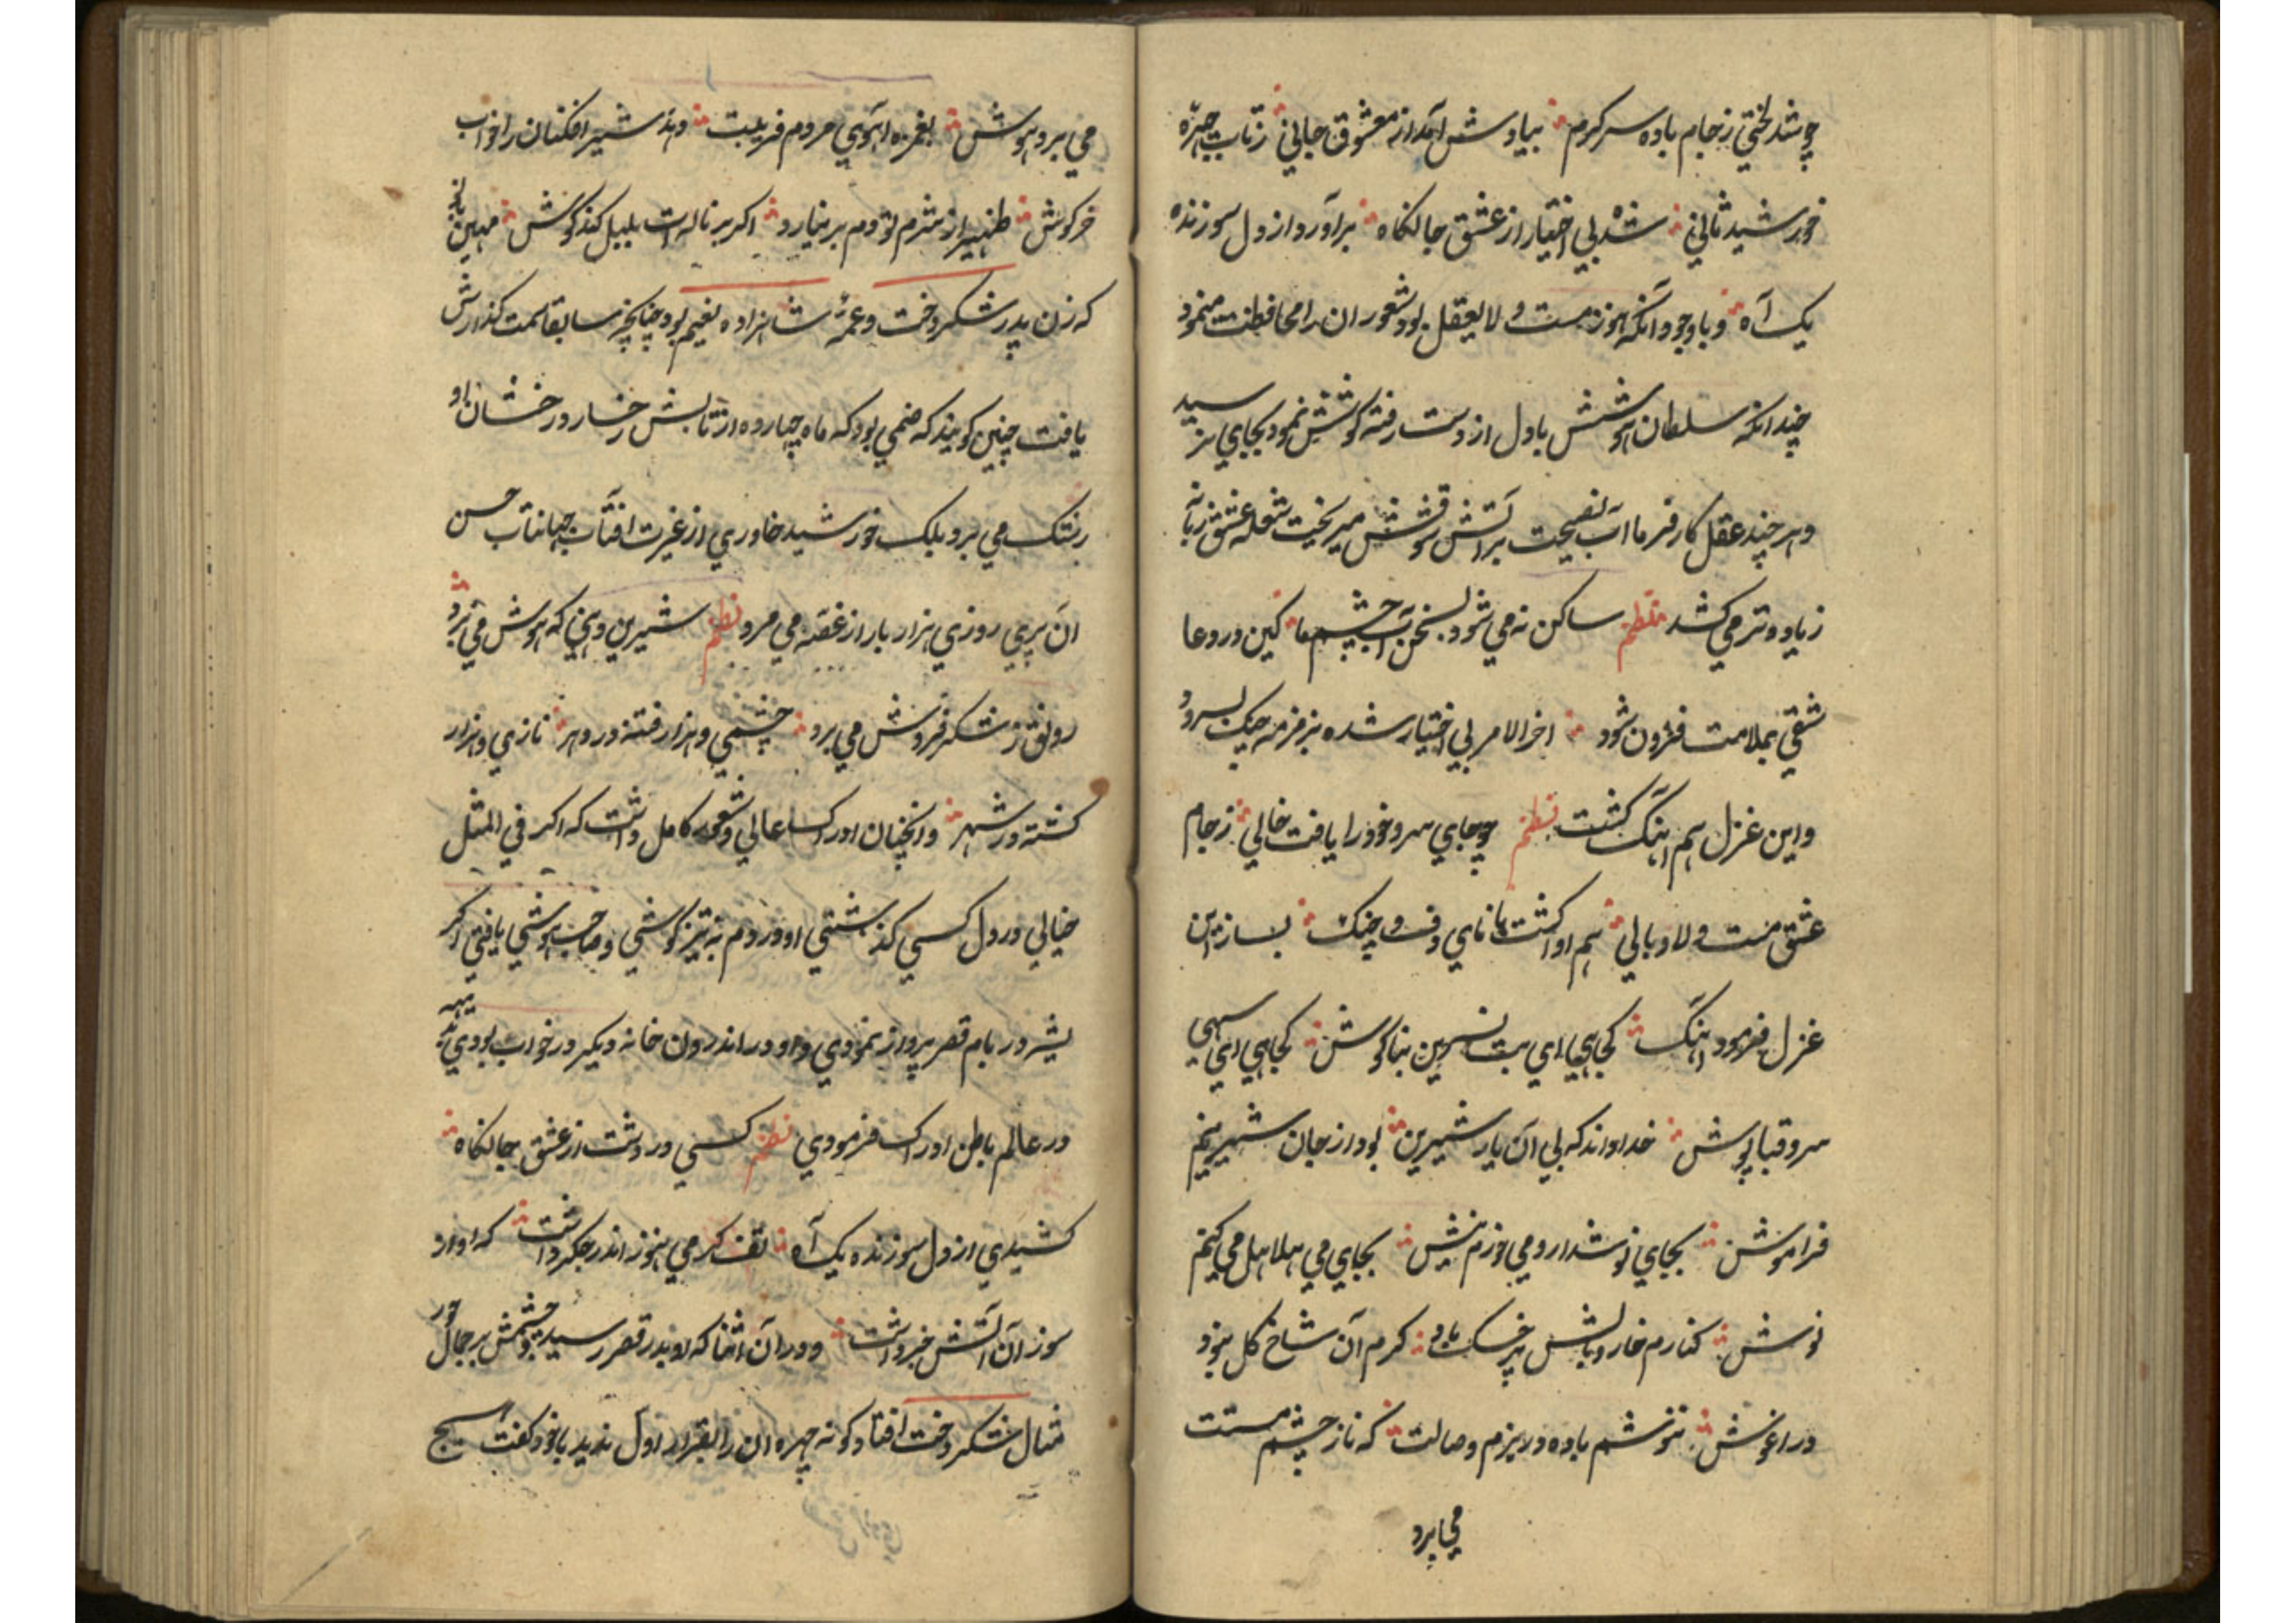 چو شد لختی ز جام باده سرکرم بیادش آمد از معشوق جانی ز تاب چهرهٔ
خورشید ثانی شد بی اختیار از عشق جانکاه برآورد از دل سوزنده
یک آه و با وجود آنکه هنوز مست و لایعقل بود شعور آن را محافظت مینمود
چندانکه سلطان هوشش با دل از دست رفته کوشش نمود بجای نرسید
و هر چند عقل کارفرما آب نصیحت بر آتش شوقش میریخت شعله عشق زبانه
زیاده تر می کشد نظم ساکن نه می شود بسخن آب چشم ما کین درد عا
شقی بملامت فزون شود اخر الامر بی اختیار شده بزمزمه چنک بسرود
و این غزل هم اهنک کشت نظم چو جای سرو خود را یافت خالی ز جام
عشق مست و لاوبالی هم آوا کشت با نای و دف و چنک بساز این
غزل فرمود اهنک کجایی ای بت نسرین بناکوش کجایی ای سهی
سرو قباپوش خدا داند که بی آن یار شیرین بود از جان شیرینم
فراموش بجای نوشدارو می خورم نیش بجای می هلاهل می کنم
نوش کنارم خار و بالش پر خسک باد کرم آن شاخ کل نبود
در اغوش ننوشم باده در بزم وصالت که ناز چشم مستت
می برد
می برد هوش بغمزه اهوی مردم فریبت دهد شیر افکنان را خواب
خرکوش ظهیر از شرم تو دم بر نیارد اکر بر ناله ات بلبل کند کوش مهین بانو
که زن پدر شکر دخت و عمهٔ شاهزاده نعیم بود چنانچه سابقا سمت کذارش
یافت چنین کویند که صنمی بود که ماه چهارده از تابش رخسار درخشان او
رشک می برد بلک خورشید خاوری از غیرت افتاب جهانتاب حسن
آن پری روزی هزار بار از غصه می مرد نظم شیرین دهنی که هوش می برد
رونق ز شکر فروش می برد چشمی و هزار فتنه در دهر نازی و هزار
کشته در شهر و انچنان ادراک عالی و شعور کامل داشت که اکر فی المثل
خیالی در دل کسی کذشتی او در دم به تیز کوشی و صاحب هوشی یافتی اکر
پشه در بام قصر پرواز نمودی و او در اندرون خانه دیکر در خواب بودی
در عالم باطن ادراک فرمودی نظم کسی در دشت از عشق جانکاه
کشیدی از دل سوزنده یک آه تف کرمی هنوز اندر جکر داشت که او از
سوز آن آتش خبر داشت و در آن اثنا که او بدر قصر رسید و چشمش بر جمال حور
مثال شکر دخت افتاد کونه چهره آن را بقرار اول ندید با خود کفت هیچ